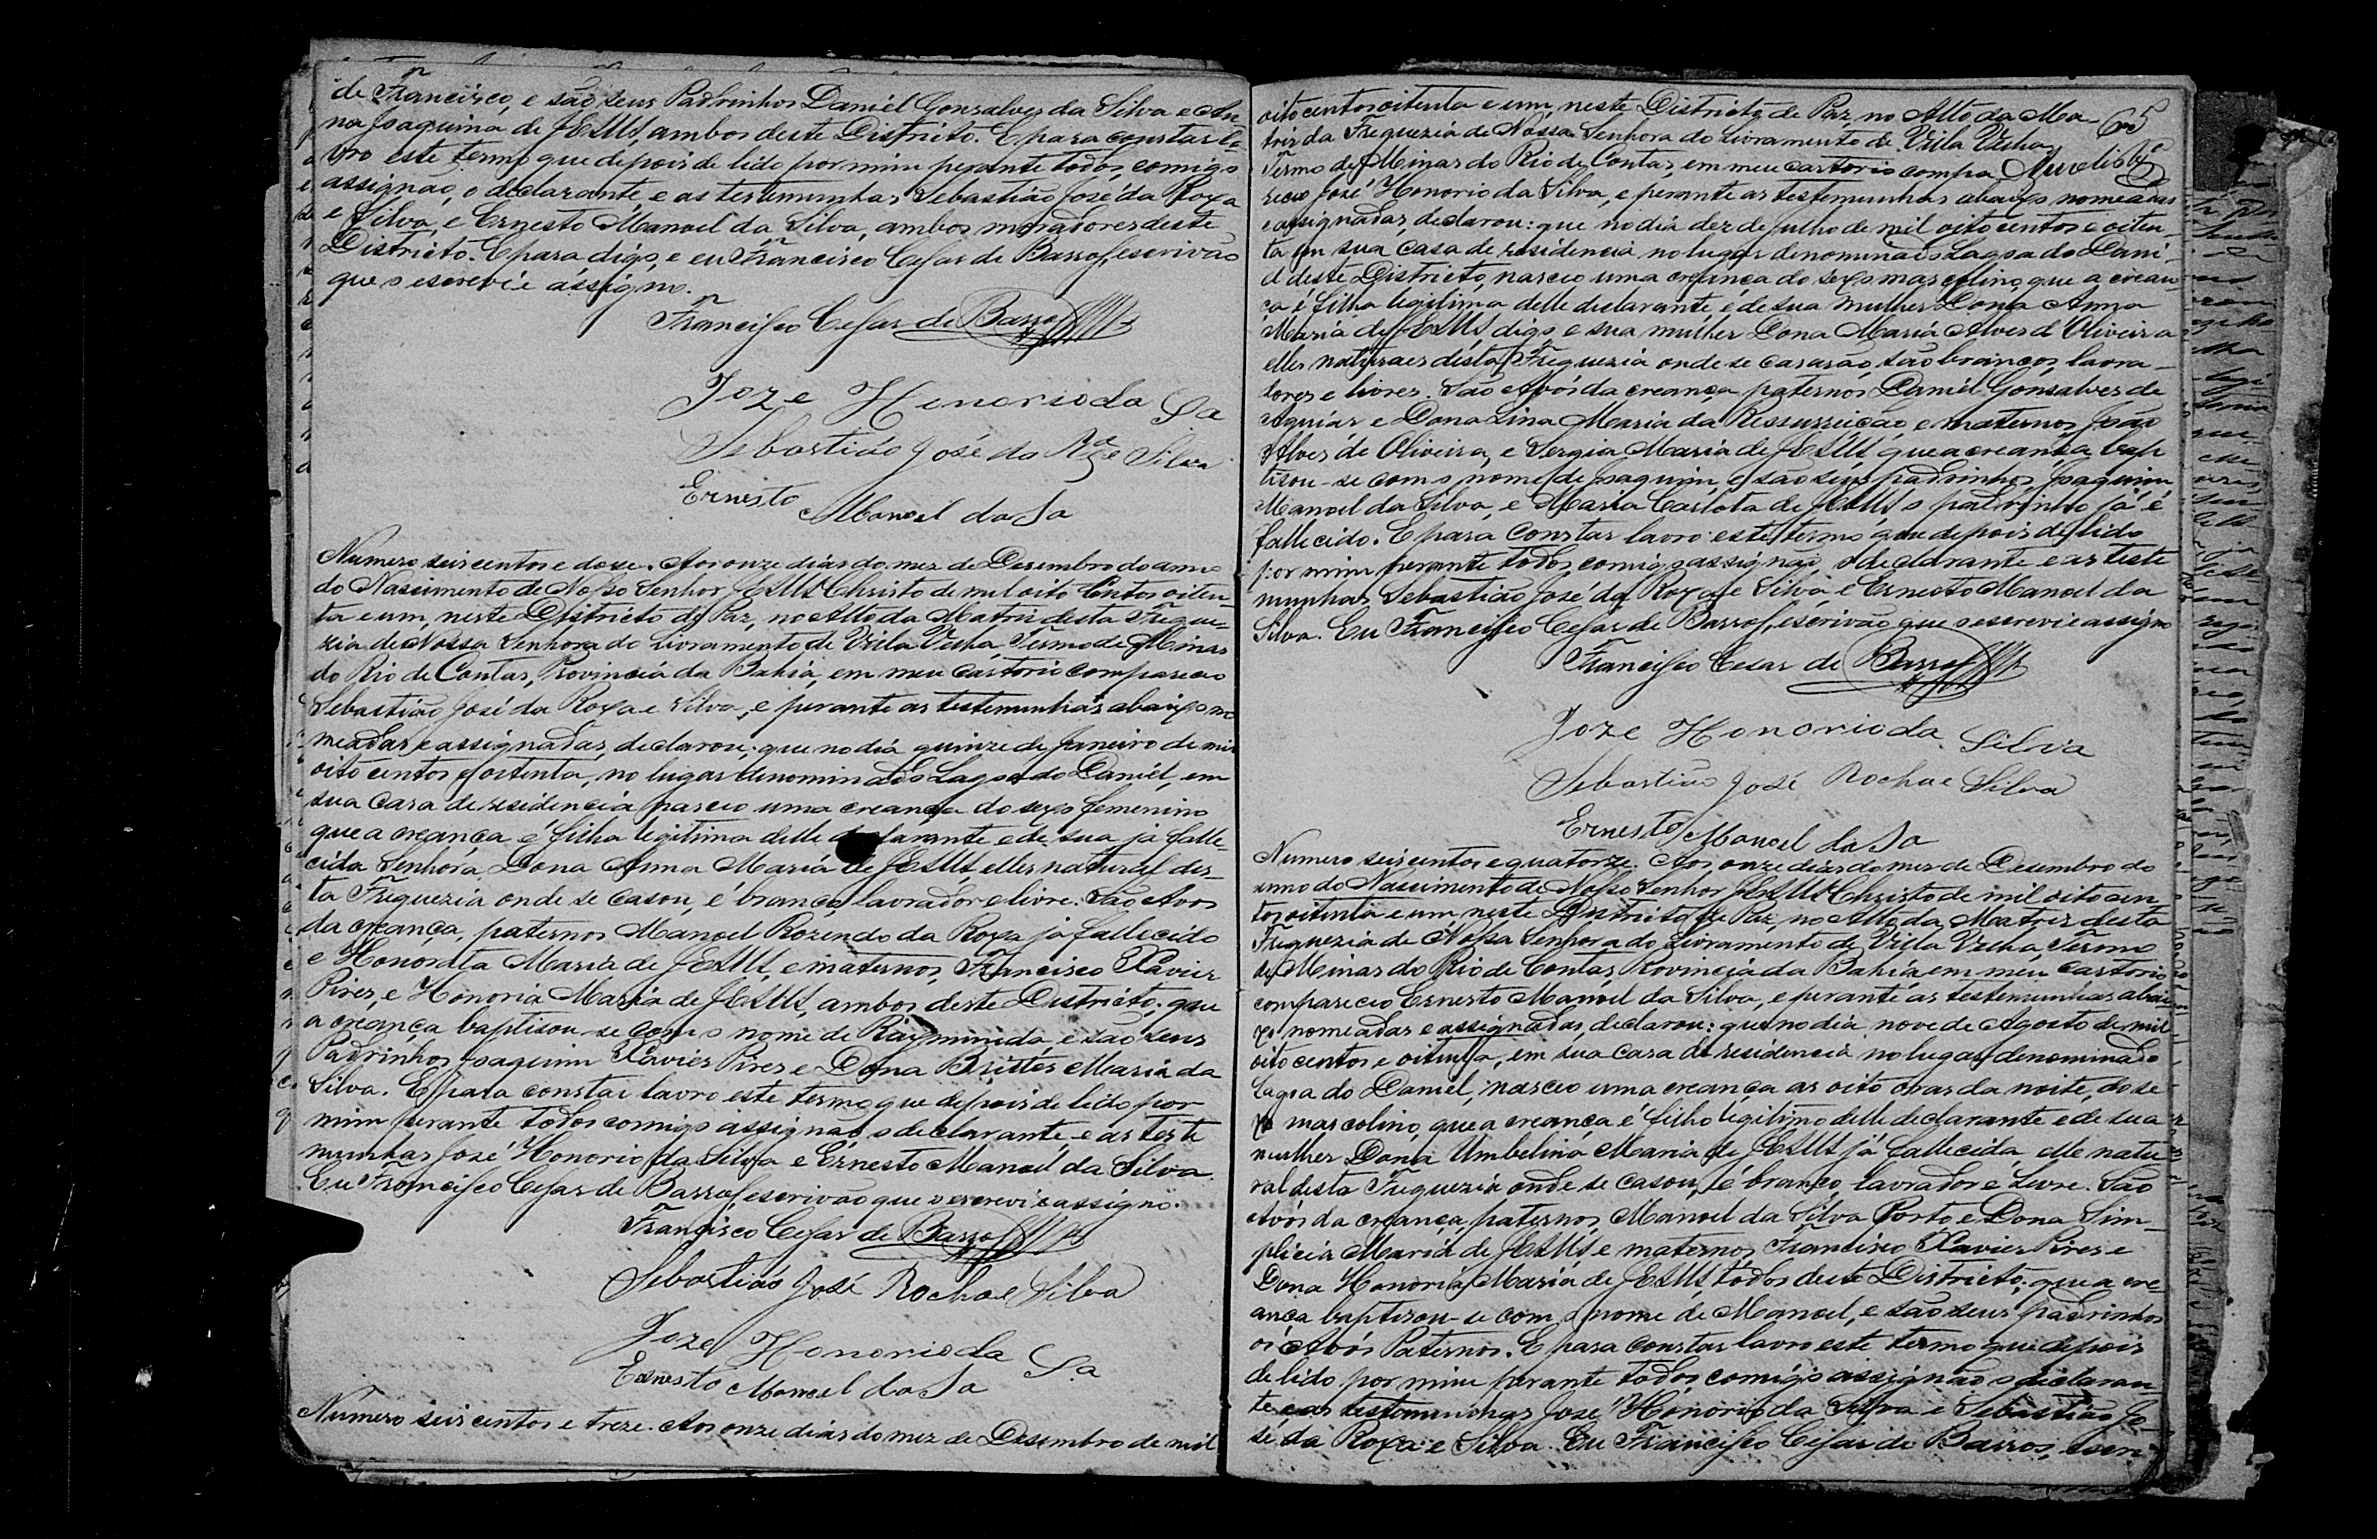 de Francisco, e são seus Padrinhos Daniél Gonsalves da Silva e An-
na Joaquina de JESUS, ambos deste Districto. E para constar la-
vro este termo que depois de lido por mim perante todos, comigo
assignão, o declarante e as testimunhas Sebastião José da Roxa
e Silva, e Ernesto Manoel da Silva, ambos moradores deste
Districto. E para digo, e eu Francisco Cesar de Barros, escrivão
que o escrevi e assigno.
Francisco Cesar de Barros
Joze Honorio da Sa
Sebastião José da Rª e Silva
Ernesto Manoel da Sa
Numero seis centos e dose. Aos onze dias do mez de Desembro do anno
do Nascimento de Nosso Senhor JESUS Christo de mil oito Centos oiten-
ta e um, neste Districto de Paz, no Alto da Matriz desta Fregue-
zia de Nossa Senhora do Livramento de Villa Velha, Termo de Minas
do Rio de Contas, Provincia da Bahia, em meu Cartorio compareceo
Sebastião José da Roxa e Silva, e perante as testemunhas abaixo no
meadas e assignadas, declarou; que no dia quinze de Janeiro de mil
oito centos e oitenta, no lugar denominado Lagoa do Daniél, em
sua casa de residencia nasceo uma creança do sexo femenino
que a creança é filha legitima delle declarante e de sua já falle-
cida Senhora Dona Anna Maria de JESUS, elles natural des-
ta Freguezia onde se casou, é branco, lavrador e livre. São Avos
da creança, paternos Manoel Rozendo da Roxa já fallecido
e Honorata Maria de JESUS, e maternos, Francisco Xavier
Pires, e Honoria Maria de JESUS, ambos deste Districto; que
a creança baptisou-se com o nome de Raymunida, e são seus
Padrinhos Joaquim Xavier Pires e Dona Brittes Maria da
Silva. E para constar lavro este termo que depois de lido por
mim perante todos comigo assignão, o declarante e as teste
munhas José Honorio da Silva e Ernesto Manoel da Silva.
Eu Francisco Cesar de Barros escrivão que o escrevi e assigno.
Francisco Cesar de Barros
Sebastião José Rocha e Silva
Joze Honorio da Sa
Ernesto Manoel da Sa
Numero seis centos e treze. Aos onze dias do mez de Desembro de mil
oito centos oitenta e um, neste Districto de Paz, no Alto da Ma- 65
triz da Freguezia de Nossa Senhora do Livramento de Villa Velha,
Termo de Minas do Rio de Contas, em meu cartorio compa
receo José Honorio da Silva, e perante as testemunhas abaixo nomeadas
e assignadas, declarou: que no dia dez de Julho de mil oito centos e oiten-
ta em sua casa de residencia no lugar denominado Lagoa do Dani-
el deste Districto, nasceo uma creança do sexo mascolino, que a crean-
ça é filha legitima delle declarante, e de sua mulher Dona Anna
Maria de JESUS, digo, e sua mulher Dona Maria Alves d'Oliveira
elles naturaes desta Freguezia onde se casarão, são brancos, lavra-
dores e livres. São Avós da creança paternos Daniél Gonsalves de
Aguiar e Dona Lina Maria da Ressurreição e maternos João
Alves de Oliveira, e Sergia Maria de JESUS, que a creança bap
tisou-se com o nome de Joaquim, e são seus padrinhos Joaquim
Manoel da Silva, e Maria Carlota de JESUS, o padrinho já é
fallecido. E para constar lavro este termo que depois de lido
por mim perante todos, comigo assignão, o declarante e as teste
munhas Sebastião José da Roxa e Silva, e Ernesto Manoel da
Silva. Eu Francisco Cesar de Barros, escrivão que o escrevi e assigno
Francisco Cesar de Barros
Joze Honorio da Silva
Sebastião José Rocha e Silva
Ernesto Manoel da Sa
Numero seis centos e quatorze. Aos onze dias do mez de Desembro do
anno do Nascimento de Nosso Senhor JESUS Christo de mil oito cen
tos oitenta e um neste Districto de Paz, no Alto da Matriz desta
Freguezia de Nossa Senhora do Livramento de Villa Velha, Termo
de Minas do Rio de Contas, Provincia da Bahia em meu Cartorio
compareceo Ernesto Manoel da Silva, e perante as testemunhas abai-
xo nomeadas e assignadas, declarou: que no dia nove de Agosto de mil
oito centos e oitenta, em sua casa de residencia no lugar denominado
Lagoa do Daniel, nasceo uma creança as oito oras da noite, do se
xo mascolino, que a creança é filho legitimo delle declarante e de sua
mulher Dona Umbelina Maria de JESUS já fallecida, elle natu
ral desta Freguezia onde se casou, é branco, lavrador e Livre. São
Avós da creança, paternos, Manoel da Silva Porto, e Dona Sim-
plicia Maria de JESUS e maternos Francisco Xavier Pires e
Dona Honoria Maria de JESUS, todos deste Districto; que a cre-
ança baptisou-se com o nome de Manoel, e são seus padrinhos
os Avós Paternos. E para constar lavro este termo que depois
de lido por mim perante todos, comigo assignão o declaran-
te e as testemunhas José Honorio da Silva e Sebastião Jo-
sé da Roxa e Silva. Eu Francisco Cesar de Barros, escri